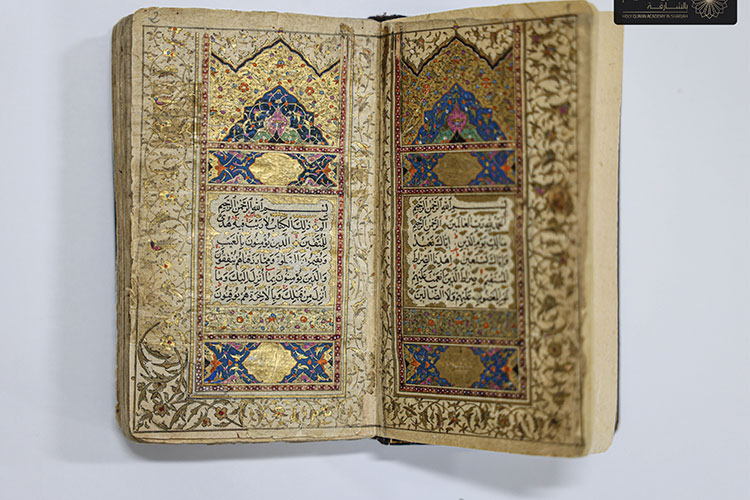 بالشارقة
HOLY QURAN ACADEMY IN SHARJAH
بسم الله الرحمن الرحيم
الحمد لله رب العالمين الرحمن الرحيم
مالك يوم الدين اياك نعبد
واياك نستعين اهدنا الصراط
المستقيم صراط الذين انعمت عليهم
غير المغضوب عليهم ولا الضالين
بسم الله الرحمن الرحيم
الم ذلك الكتاب لا ريب فيه هدى
للمتقين الذين يؤمنون بالغيب
ويقيمون الصلوة ومما رزقناهم ينفقون
والذين يؤمنون بما انزل اليك وما
انزل من قبلك وبالاخرة هم يوقنون